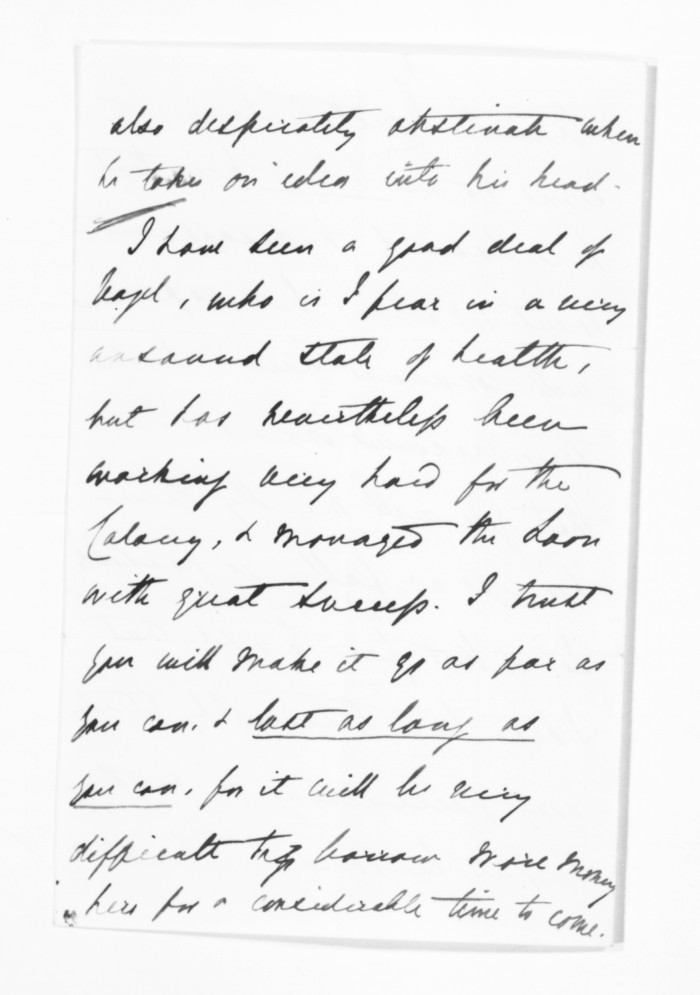 also despirately obstinate when
he takes an idea into his head.
I have seen a good deal of
Vogel, who is I fear in a very
unsound state of health,
but has nevertheless been
working very hard for the
Colony, & managed the Loan
with great success. I trust
you will make it go as far as
you can. & last as long as
you can, for it will be very
difficult to borrow more money
here for a considerable time to come.